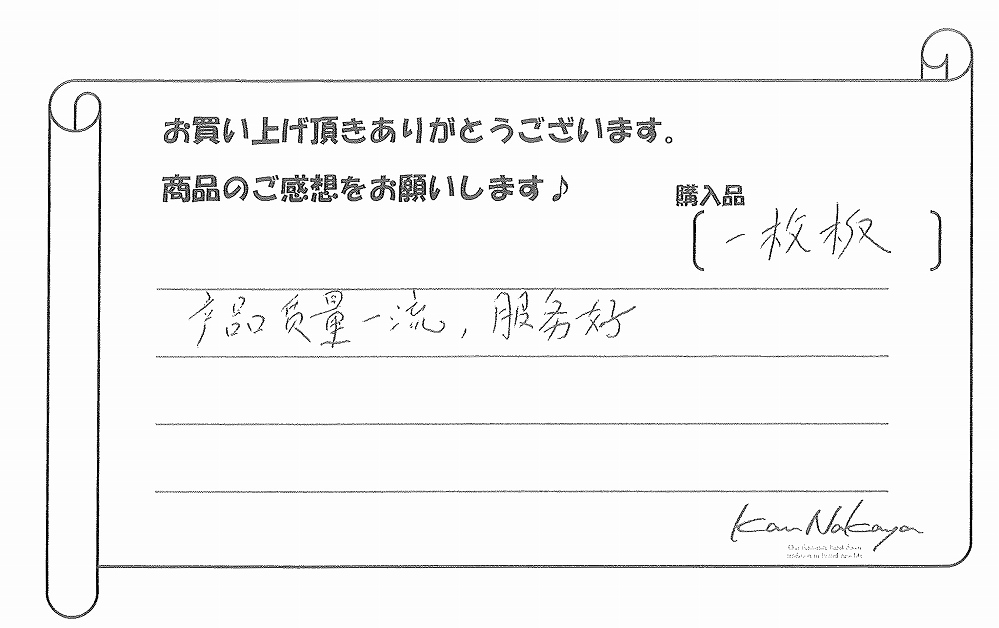 お買い上げ頂きありがとうございます。
商品のご感想をお願いします♪
購入品
〔一枚板〕
产品质量一流,服务好
Kan Nakaya